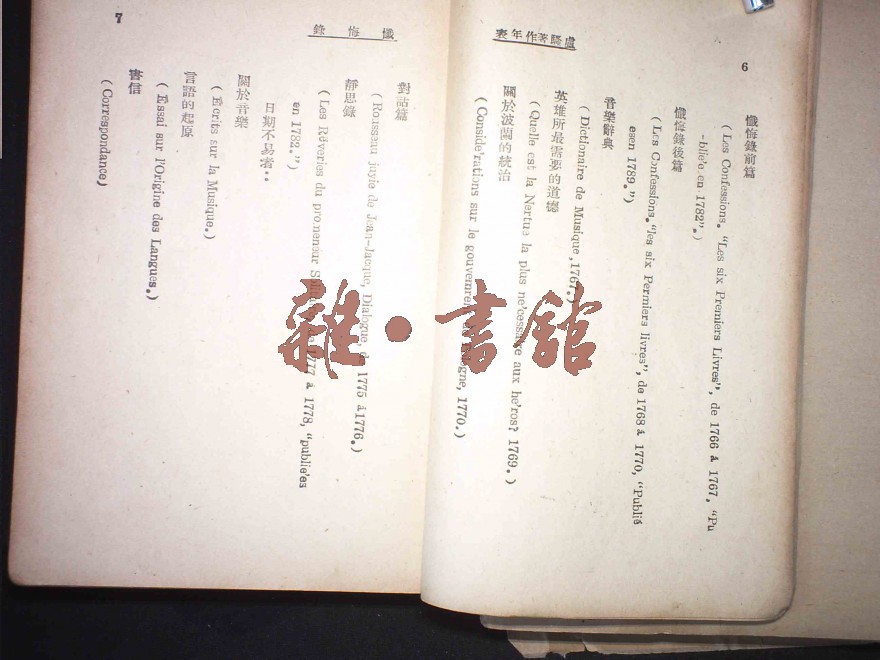 盧騷著作年表
6
懺悔錄前篇
( Les Confessions. “Les six Premiers Livres”, de 1766 á 1767, “Pu
-blie'e en 1782”. )
懺悔錄後篇
( Les Confessions. “les six Permiers livres”, de 1768 á 1770, “Publié
esen 1789.”)
音樂辭典
( Dictionaire de Musique ,1767. )
英雄所最需要的道德
( Quelle est la Nertue la plus ne'cessaire aux he'ros? 1769. )
關於波蘭的統治
( Conside'rations sur le gouvemrent de Pologne, 1770. )
懺悔錄
7
對話篇
( Rousseau juyie de Jean-Jacque, Dialogue, de 1775 á1776. )
靜思錄
( Les Réveries du promeneur de 1777 á 1778, “publie'es
en 1782.”)
日期不易者‥
關於音樂
( Ecrits sur la Musique. )
言語的起原
( Essai sur l'Origine des Langues. )
書信
( Correspondance)
雜·書館